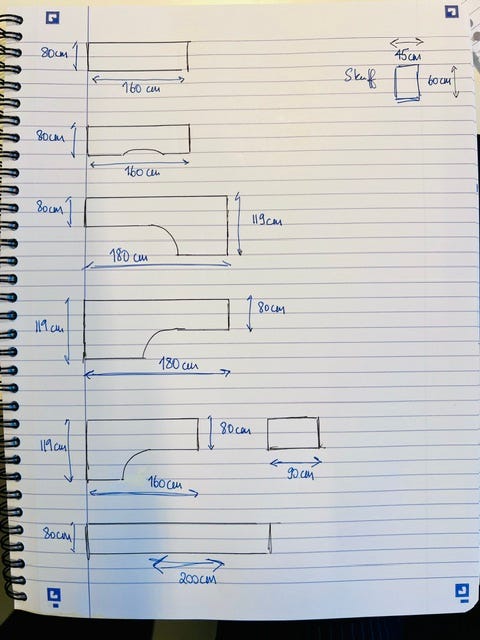 80cm
160 cm
45cm
Skuff
60cm
80cm
160 cm
80cm
119cm
180 cm
119 cm
80cm
180 cm
119cm
80cm
160cm
90cm
80cm
200cm